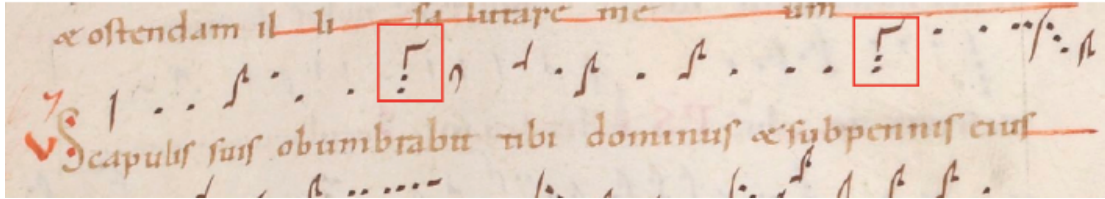 & ostendam il li sa lutare me um
V Scapulis suis obumbrabit tibi dominus & sub pennis eius